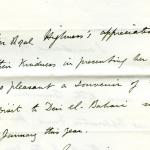 Royal Highness's appreciation
their kindness in presenting her
so pleasant a souvenir of
visit to Deir el-Bahari
January this year.